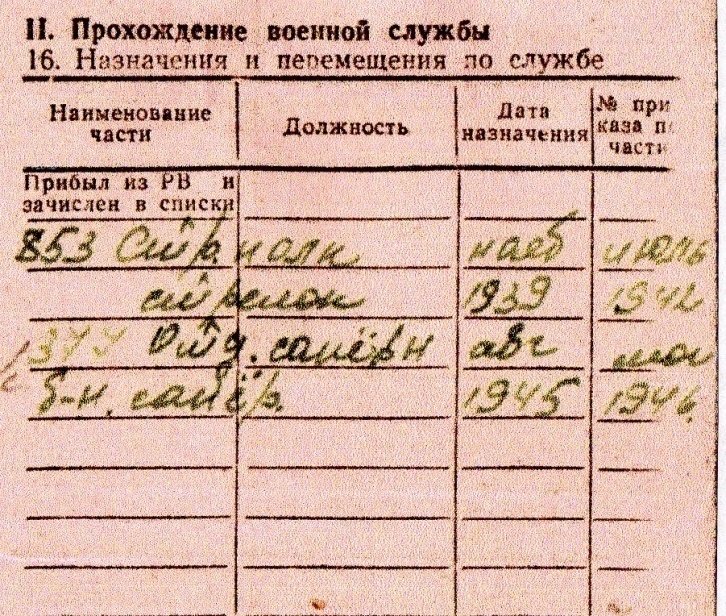 II. Прохождение военной службы
16. Назначения и перемещения по службе
Наименование части
Должность
Дата назначения
№ при каза п части
Прибыл из РВ и зачислен в списки
853 Стр. полк июль
стрелок 1939 1942
Отд. сапёрн авг май
б-н. сапёр. 1945 1946